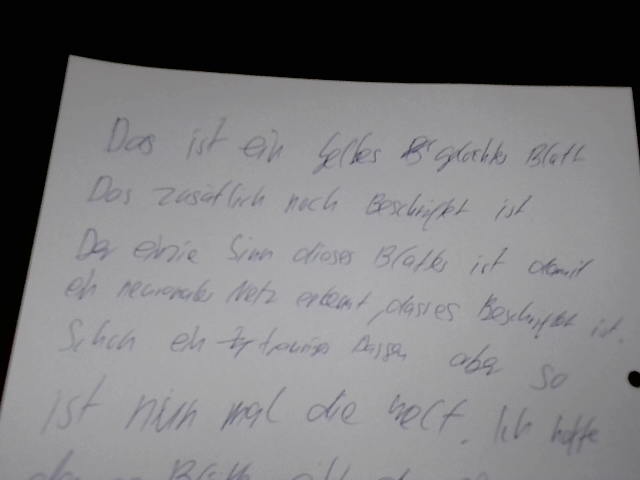 Das ist ein gelbes gelochtes Blatt
Das zusätlich noch Beschriftet ist
Der einzie Sinn dieses Blattes ist damit
ein neuronales Netz erkennt, dass es Beschriftet ist.
Schon ein trauriges aber so
ist nun mal die Welt. Ich hoffe
Blatt